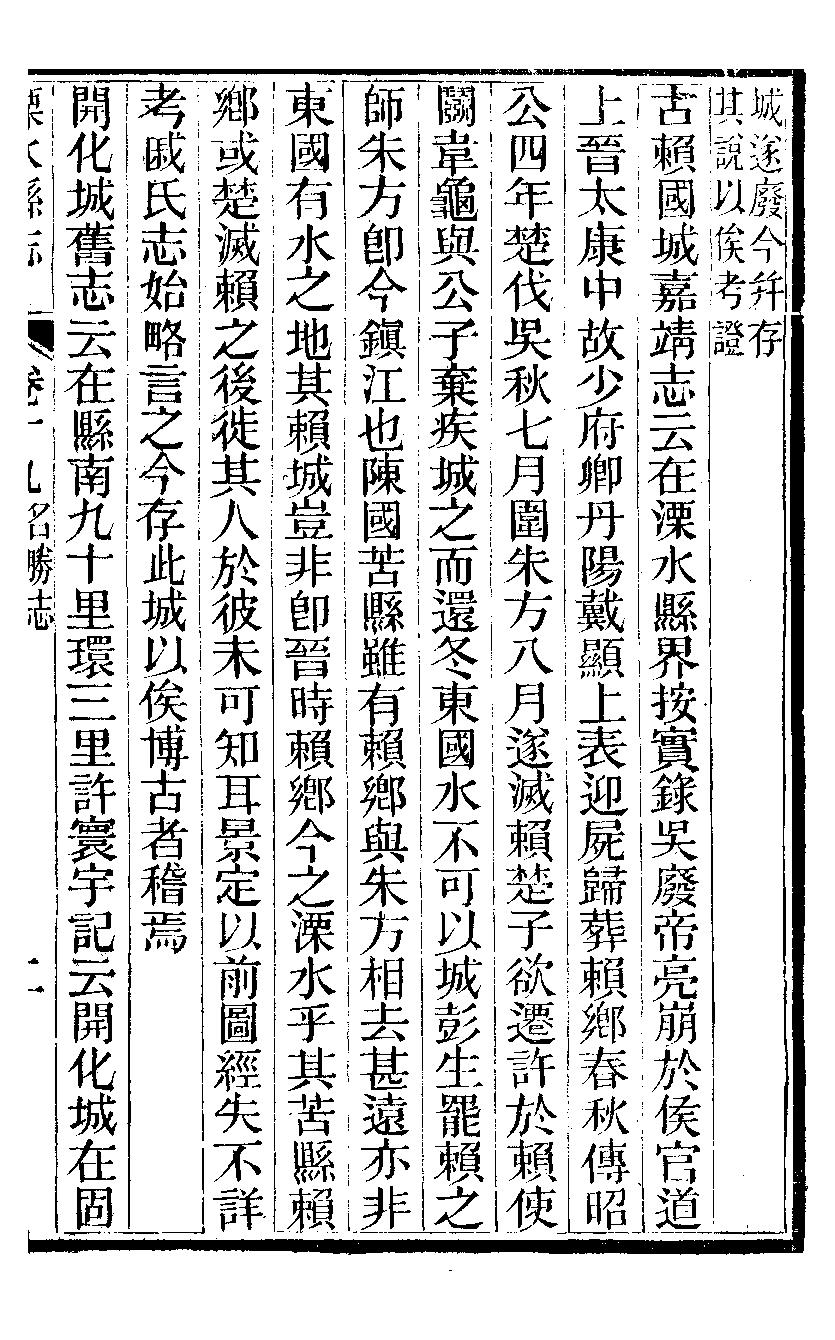 城遂廢今并存
其說以俟考證
古賴國城嘉靖志云在溧水縣界按實錄吳廢帝亮崩於侯官道
上晉太康中故少府卿丹陽戴顯上表迎屍歸葬賴鄉春秋傳昭
公四年楚伐吳秋七月圍朱方八月遂滅賴楚子欲遷許於賴使
鬬韋龜與公子棄疾城之而還冬東國水不可以城彭生罷賴之
師朱方卽今鎮江也陳國苦縣雖有賴鄉與朱方相去甚遠亦非
東國有水之地其賴城豈非卽晉時賴鄉今之溧水乎其苦縣賴
鄉或楚滅賴之後徙其人於彼未可知耳景定以前圖經失不詳
考戚氏志始略言之今存此城以俟博古者稽焉
開化城舊志云在縣南九十里環三里許寰宇記云開化城在固
溧水縣志 卷十九名勝志 二